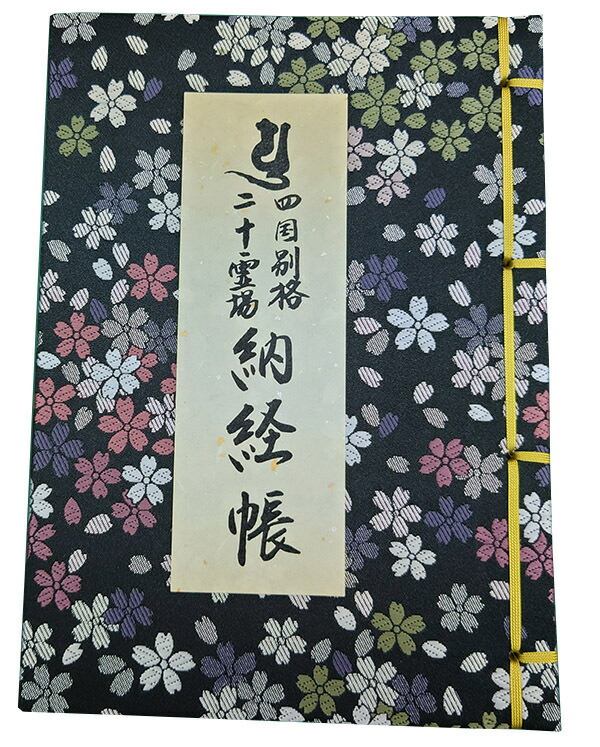 四国別格
二十霊場
納経帳